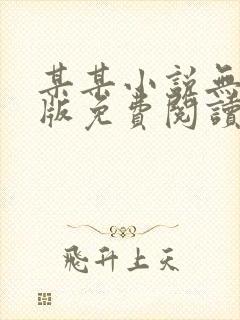 某某小説無
版免費閱讀
飛升上天